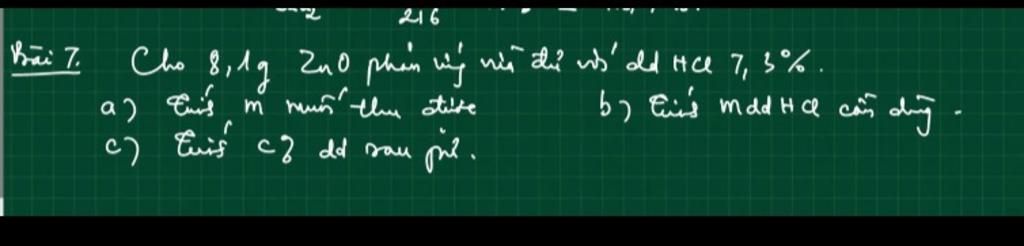 216
Bài 7. Cho 8,1g ZnO phản ứng vừa đủ với dd HCl 7,3%.
a) Tính m muối thu được b) Tính mdd HCl cần dùng.
c) Tính C% dd sau pứ.